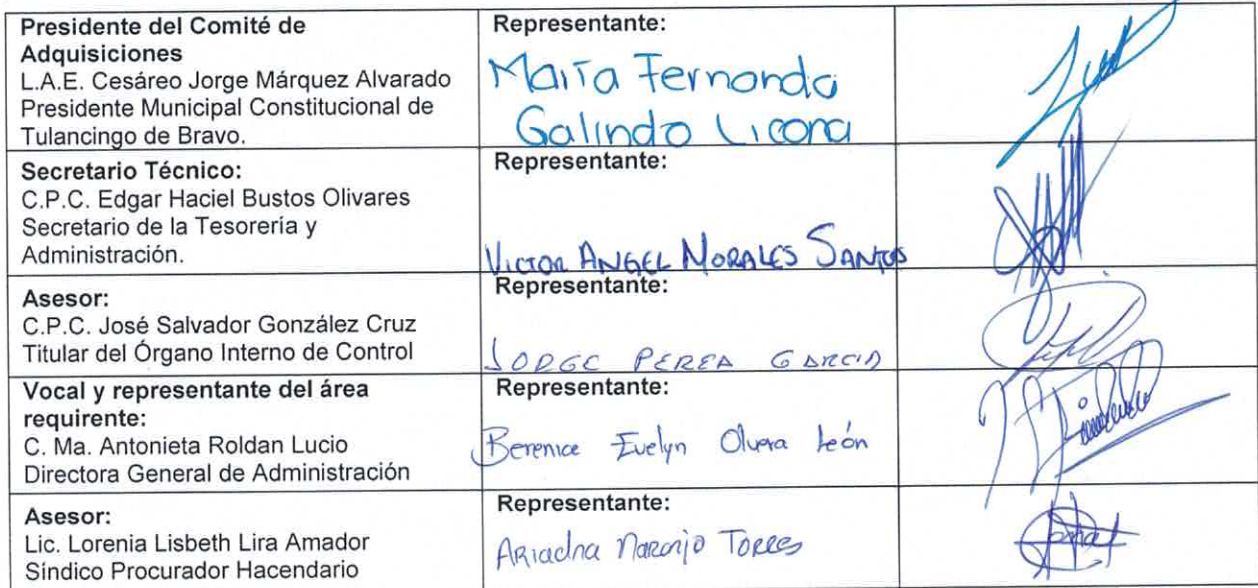 Presidente del Comité de
Adquisiciones
L.A.E. Cesáreo Jorge Márquez Alvarado
Presidente Municipal Constitucional de
Tulancingo de Bravo.
Representante:
María Fernanda
Galindo Licona
Secretario Técnico:
C.P.C. Edgar Haciel Bustos Olivares
Secretario de la Tesorería y
Administración.
Representante:
VICTOR ANGEL MORALES SANTOS
Asesor:
C.P.C. José Salvador González Cruz
Titular del Órgano Interno de Control
Representante:
JORGE PEREA GARCIA
Vocal y representante del área
requirente:
C. Ma. Antonieta Roldan Lucio
Directora General de Administración
Representante:
Berenice Evelyn Olvera León
Asesor:
Lic. Lorenia Lisbeth Lira Amador
Síndico Procurador Hacendario
Representante:
Ariadna Naranjo Torres